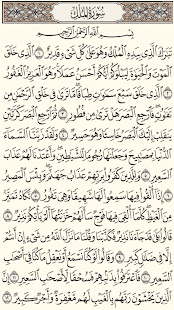 سُورَةُ الْمُلْكِ
بِسْمِ اللَّهِ الرَّحْمَٰنِ الرَّحِيمِ
تَبَارَكَ الَّذِي بِيَدِهِ الْمُلْكُ وَهُوَ عَلَىٰ كُلِّ شَيْءٍ قَدِيرٌ ١ الَّذِي خَلَقَ
الْمَوْتَ وَالْحَيَاةَ لِيَبْلُوَكُمْ أَيُّكُمْ أَحْسَنُ عَمَلًا وَهُوَ الْعَزِيزُ الْغَفُورُ
٢ الَّذِي خَلَقَ سَبْعَ سَمَاوَاتٍ طِبَاقًا مَّا تَرَىٰ فِي خَلْقِ الرَّحْمَٰنِ مِن
تَفَاوُتٍ فَارْجِعِ الْبَصَرَ هَلْ تَرَىٰ مِن فُطُورٍ ٣ ثُمَّ ارْجِعِ الْبَصَرَ كَرَّتَيْنِ
يَنقَلِبْ إِلَيْكَ الْبَصَرُ خَاسِئًا وَهُوَ حَسِيرٌ ٤ وَلَقَدْ زَيَّنَّا السَّمَاءَ
الدُّنْيَا بِمَصَابِيحَ وَجَعَلْنَاهَا رُجُومًا لِّلشَّيَاطِينِ وَأَعْتَدْنَا لَهُمْ عَذَابَ
السَّعِيرِ ٥ وَلِلَّذِينَ كَفَرُوا بِرَبِّهِمْ عَذَابُ جَهَنَّمَ وَبِئْسَ الْمَصِيرُ
٦ إِذَا أُلْقُوا فِيهَا سَمِعُوا لَهَا شَهِيقًا وَهِيَ تَفُورُ ٧ تَكَادُ تَمَيَّزُ
مِنَ الْغَيْظِ كُلَّمَا أُلْقِيَ فِيهَا فَوْجٌ سَأَلَهُمْ خَزَنَتُهَا أَلَمْ يَأْتِكُمْ نَذِيرٌ ٨
قَالُوا بَلَىٰ قَدْ جَاءَنَا نَذِيرٌ فَكَذَّبْنَا وَقُلْنَا مَا نَزَّلَ اللَّهُ مِن شَيْءٍ إِنْ أَنتُمْ
إِلَّا فِي ضَلَالٍ كَبِيرٍ ٩ وَقَالُوا لَوْ كُنَّا نَسْمَعُ أَوْ نَعْقِلُ مَا كُنَّا فِي أَصْحَابِ
السَّعِيرِ ١٠ فَاعْتَرَفُوا بِذَنبِهِمْ فَسُحْقًا لِّأَصْحَابِ السَّعِيرِ ١١ إِنَّ
الَّذِينَ يَخْشَوْنَ رَبَّهُم بِالْغَيْبِ لَهُم مَّغْفِرَةٌ وَأَجْرٌ كَبِيرٌ ١٢